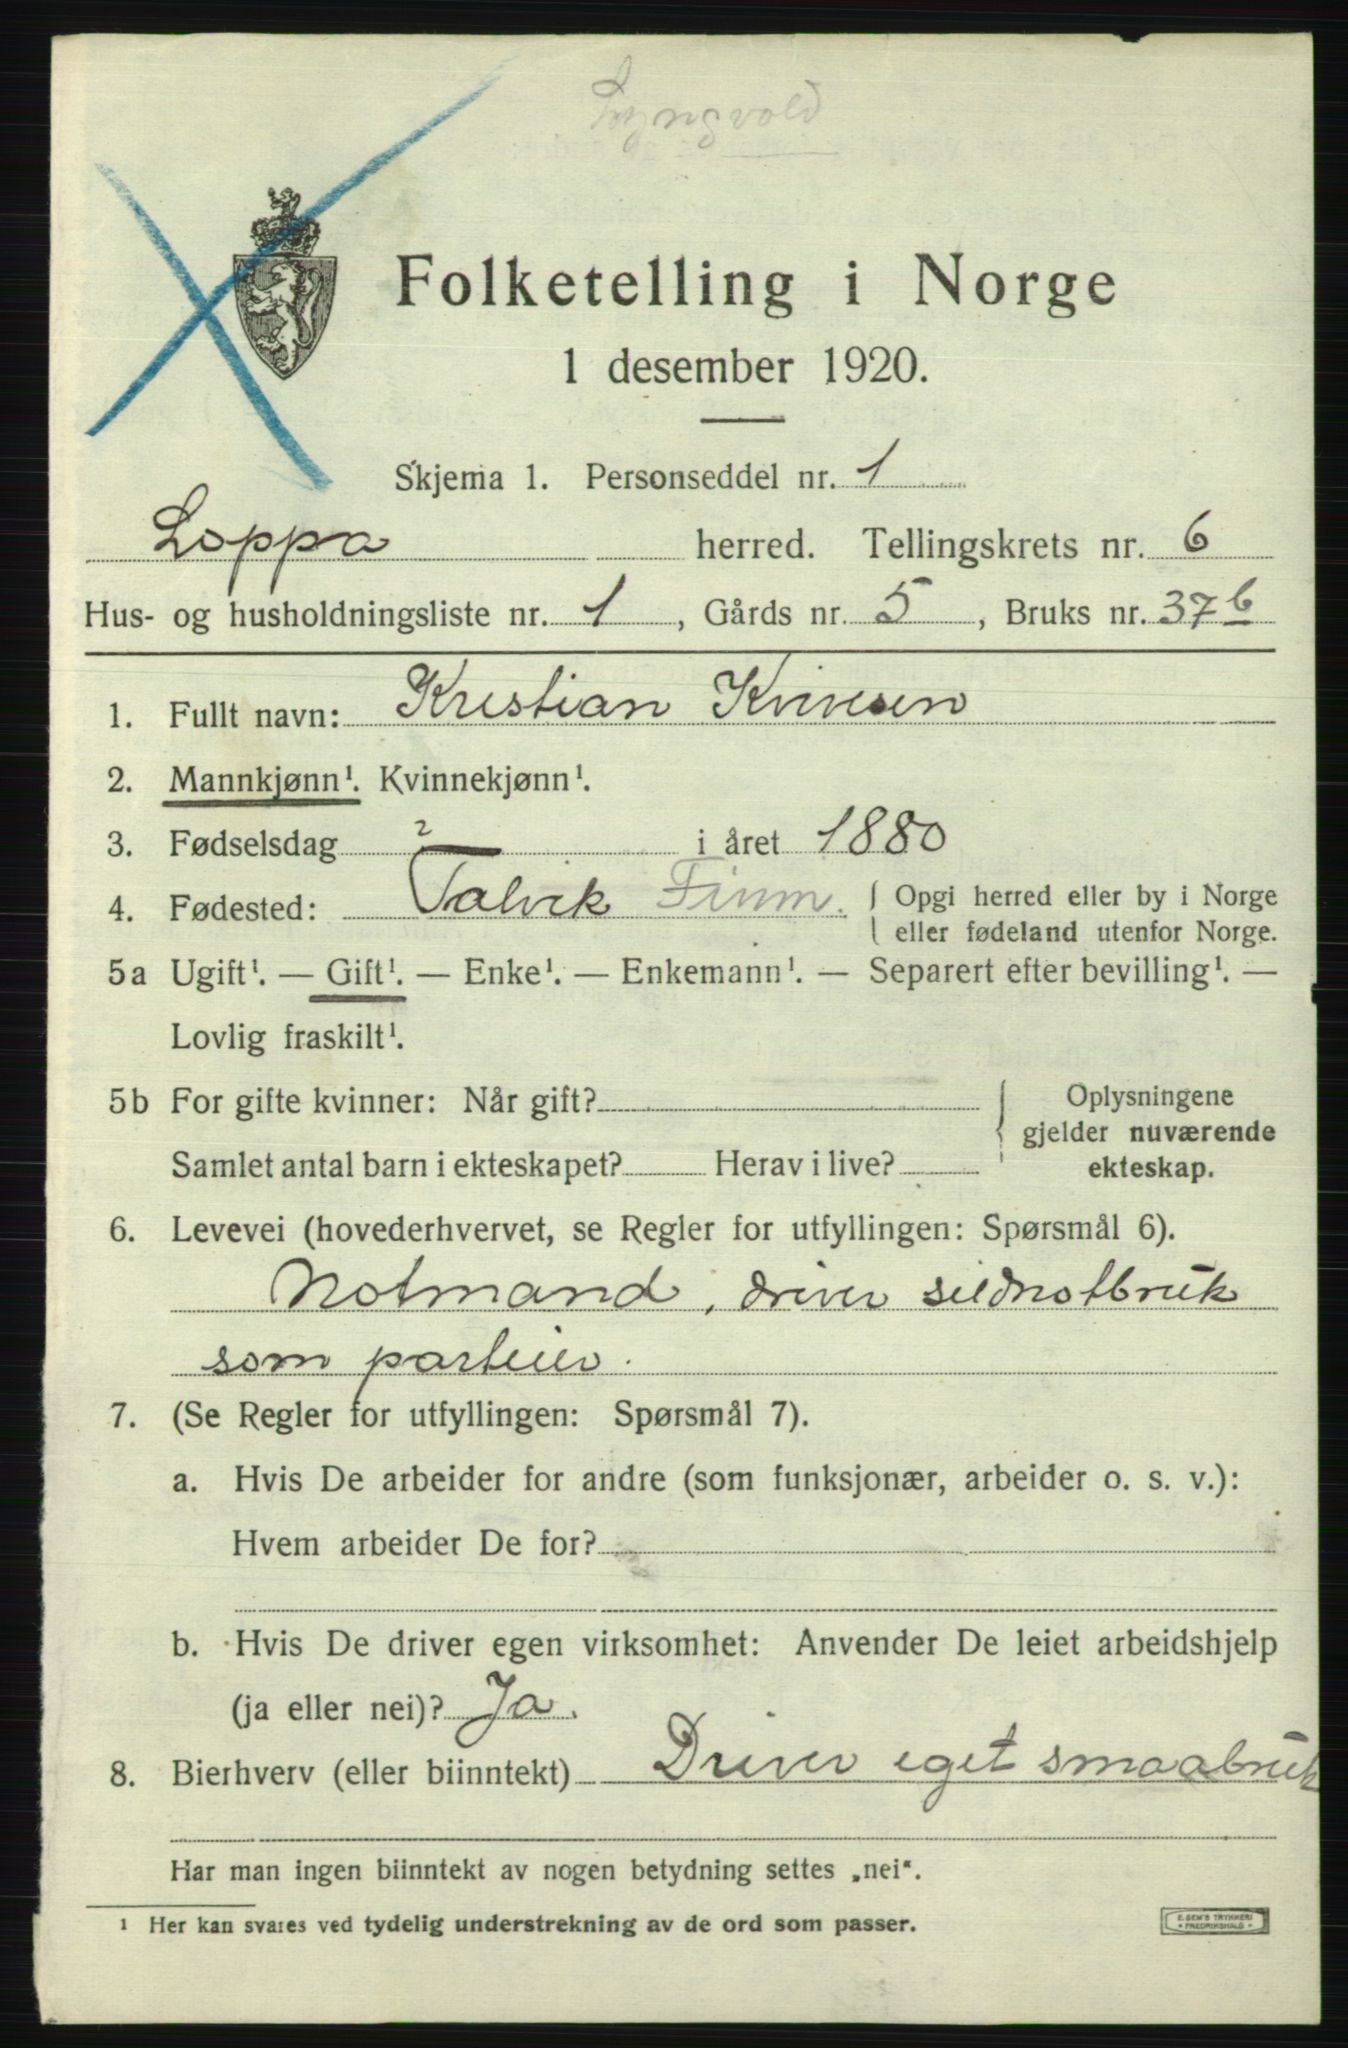 Lyngvold
Folketelling i Norge
1 desember 1920.
Skjema 1. Personseddel nr. 1
Loppa herred. Tellingskrets nr. 6
Hus- og husholdningsliste nr. 1, Gårds nr. 5, Bruks nr. 37b
1. Fullt navn: Kristian Kvivesen
2. Mannkjønn¹. Kvinnekjønn¹.
3. Fødselsdag 2 i året 1880
4. Fødested: Talvik Finm. { Opgi herred eller by i Norge
eller fødeland utenfor Norge.
5a Ugift¹. — Gift¹. — Enke¹. — Enkemann¹. — Separert efter bevilling¹. —
Lovlig fraskilt¹.
5b For gifte kvinner: Når gift? { Oplysningene
gjelder nuværende
Samlet antal barn i ekteskapet? Herav i live? ekteskap.
6. Levevei (hovederhvervet, se Regler for utfyllingen: Spørsmål 6).
Notmand, driver sildnotbruk
som parteier.
7. (Se Regler for utfyllingen: Spørsmål 7).
a. Hvis De arbeider for andre (som funksjonær, arbeider o. s. v.):
Hvem arbeider De for?
b. Hvis De driver egen virksomhet: Anvender De leiet arbeidshjelp
(ja eller nei)? Ja.
8. Bierhverv (eller biinntekt) Driver eget smaabruk
Har man ingen biinntekt av nogen betydning settes „nei".
¹ Her kan svares ved tydelig understrekning av de ord som passer.
E. SEM'S TRYKKERI
FREDRIKSHALD